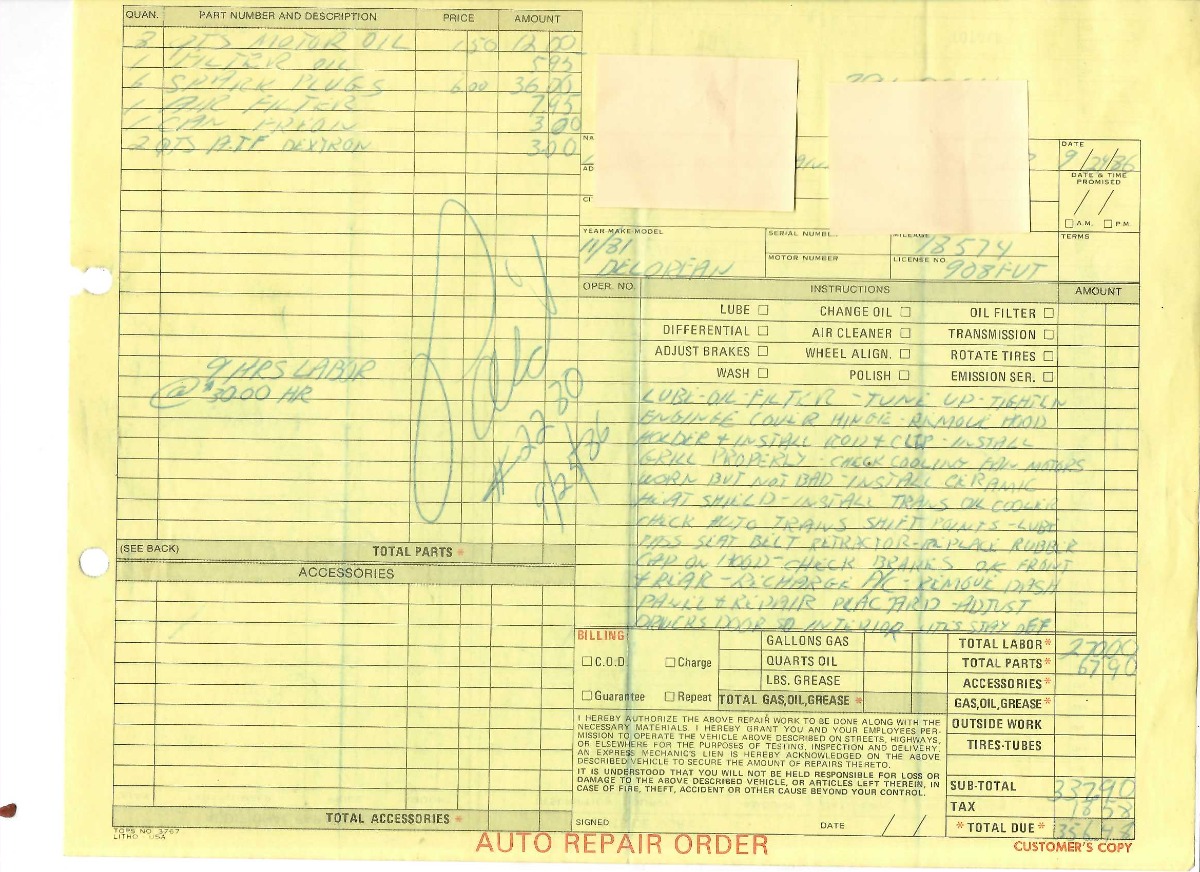 QUAN. PART NUMBER AND DESCRIPTION PRICE AMOUNT
8 QTS MOTOR OIL 1 50 12.00
1 FILTER OIL 5 95
6 SPARK PLUGS 6 00 36.00
1 AIR FILTER 7.95
1 CAN FREON 3.00
2 QTS ATF DEXTRON 3.00
9 HRS LABOR
@ $30.00 HR
Paid
9/24/86
(SEE BACK) TOTAL PARTS *
ACCESSORIES
TOTAL ACCESSORIES *
TOPS NO. 3767
LITHO USA
NA
AD
CI
DATE
9/24/86
DATE & TIME
PROMISED
/ /
☐ A.M. ☐ P.M.
YEAR-MAKE-MODEL SERIAL NUMB MILEAGE TERMS
11/81 18574
MOTOR NUMBER LICENSE NO.
DELOREAN 908FUT
OPER. NO. INSTRUCTIONS AMOUNT
LUBE ☐ CHANGE OIL ☐ OIL FILTER ☐
DIFFERENTIAL ☐ AIR CLEANER ☐ TRANSMISSION ☐
ADJUST BRAKES ☐ WHEEL ALIGN. ☐ ROTATE TIRES ☐
WASH ☐ POLISH ☐ EMISSION SER. ☐
LUBE-OIL-FILTER - TUNE UP - TIGHTEN
ENGINGE COVER HINGE - REMOVE HOOD
HOLDER & INSTALL ROD & CLIP - INSTALL
GRILL PROPERLY - CHECK COOLING FAN MOTORS
WORN BUT NOT BAD - INSTALL CERAMIC
HEAT SHIELD - INSTALL TRANS OIL COOLER
CHECK AUTO TRANS SHIFT POINTS - LUBE
PASS SEAT BELT RETRACTOR - REPLACE RUBBER
CAP ON HOOD - CHECK BRAKES OK FRONT
& REAR - RECHARGE A/C - REMOVE DASH
PANEL & REPAIR PLACTARD - ADJUST
DRIVERS DOOR SO INTERIOR LITES STAY OFF
BILLING
☐ C.O.D. ☐ Charge
☐ Guarantee ☐ Repeat
GALLONS GAS
QUARTS OIL
LBS. GREASE
TOTAL GAS,OIL,GREASE *
TOTAL LABOR* 270 00
TOTAL PARTS* 67 90
ACCESSORIES*
GAS,OIL,GREASE*
OUTSIDE WORK
TIRES-TUBES
SUB-TOTAL 337 90
TAX 18 58
*TOTAL DUE* 356 48
I HEREBY AUTHORIZE THE ABOVE REPAIR WORK TO BE DONE ALONG WITH THE
NECESSARY MATERIALS. I HEREBY GRANT YOU AND YOUR EMPLOYEES PER-
MISSION TO OPERATE THE VEHICLE ABOVE DESCRIBED ON STREETS, HIGHWAYS,
OR ELSEWHERE FOR THE PURPOSES OF TESTING, INSPECTION AND DELIVERY.
AN EXPRESS MECHANIC'S LIEN IS HEREBY ACKNOWLEDGED ON THE ABOVE
DESCRIBED VEHICLE TO SECURE THE AMOUNT OF REPAIRS THERETO.
IT IS UNDERSTOOD THAT YOU WILL NOT BE HELD RESPONSIBLE FOR LOSS OR
DAMAGE TO THE ABOVE DESCRIBED VEHICLE, OR ARTICLES LEFT THEREIN, IN
CASE OF FIRE, THEFT, ACCIDENT OR OTHER CAUSE BEYOND YOUR CONTROL.
SIGNED DATE / /
AUTO REPAIR ORDER
CUSTOMER'S COPY